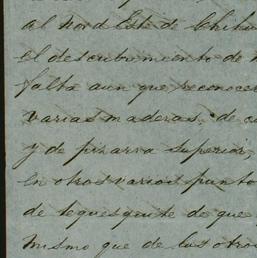 al Nord Este de Chihu
el descubrimiento de
falta aun que reconocer
varias maderas, de
y de pizarra superior,
en otros varios punto
de tequesquite de que
mismo que de los otros